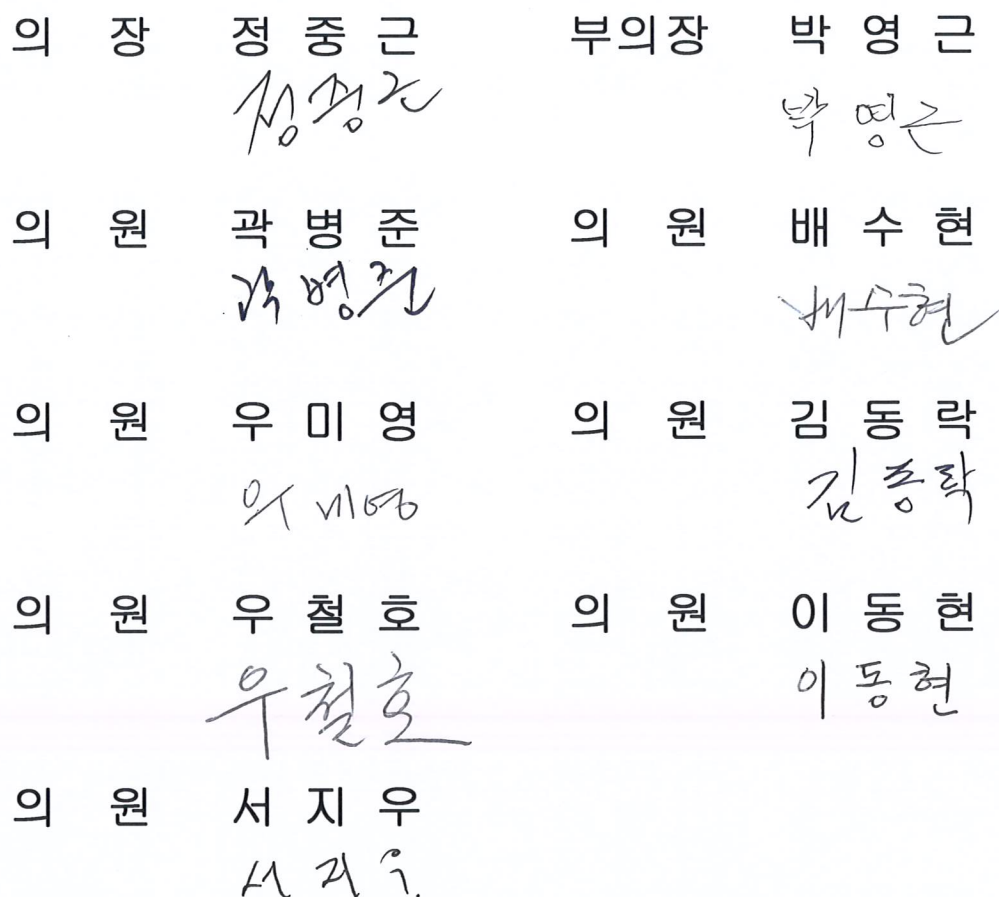 의 장 정 중 근 부의장 박 영 근
정중근 박 영근
의 원 곽 병 준 의 원 배 수 현
곽 병준 배수현
의 원 우 미 영 의 원 김 동 락
우 미영 김 동 락
의 원 우 철 호 의 원 이 동 현
우 철 호 이 동 현
의 원 서 지 우
서 지 우